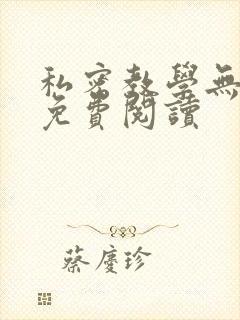 私密教學無
免費閱讀
蔡慶珍